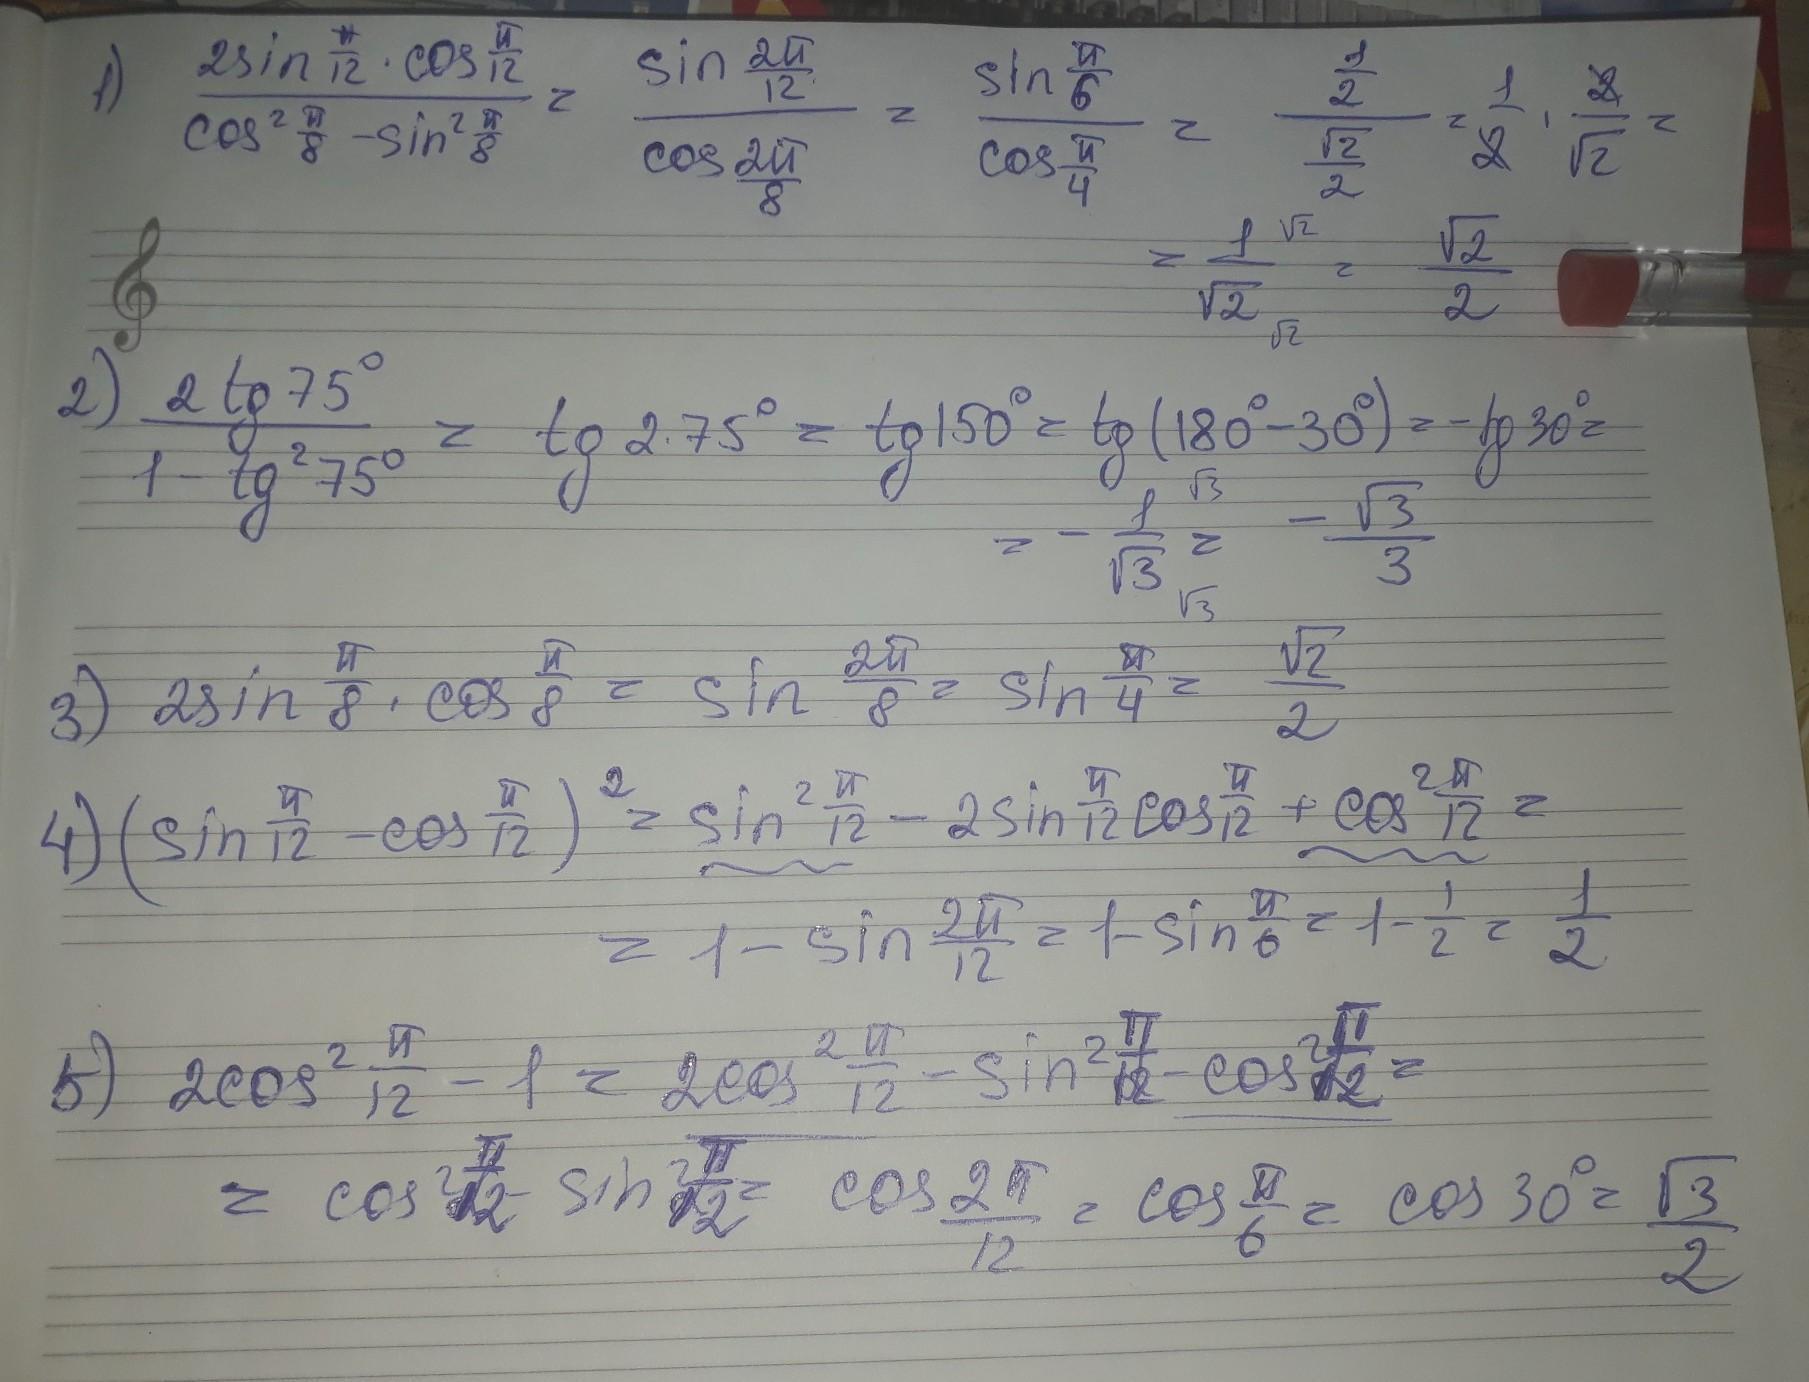 1) (2sin π/12 · cos π/12)/(cos² π/8 - sin² π/8) = (sin 2π/12)/(cos 2π/8) = (sin π/6)/(cos π/4) = (1/2)/(√2/2) = 1/2 · 2/√2 =
= 1/√2 √2/√2 = √2/2
2) (2 tg 75°)/(1 - tg² 75°) = tg 2·75° = tg 150° = tg (180° - 30°) = - tg 30° =
= - 1/√3 √3/√3 = - √3/3
3) 2sin π/8 · cos π/8 = sin 2π/8 = sin π/4 = √2/2
4) (sin π/12 - cos π/12)² = sin² π/12 - 2sin π/12 cos π/12 + cos² π/12 =
= 1 - sin 2π/12 = 1 - sin π/6 = 1 - 1/2 = 1/2
5) 2cos² π/12 - 1 = 2cos² π/12 - sin² π/12 - cos² π/12 =
= cos² π/12 - sin² π/12 = cos 2π/12 = cos π/6 = cos 30° = √3/2